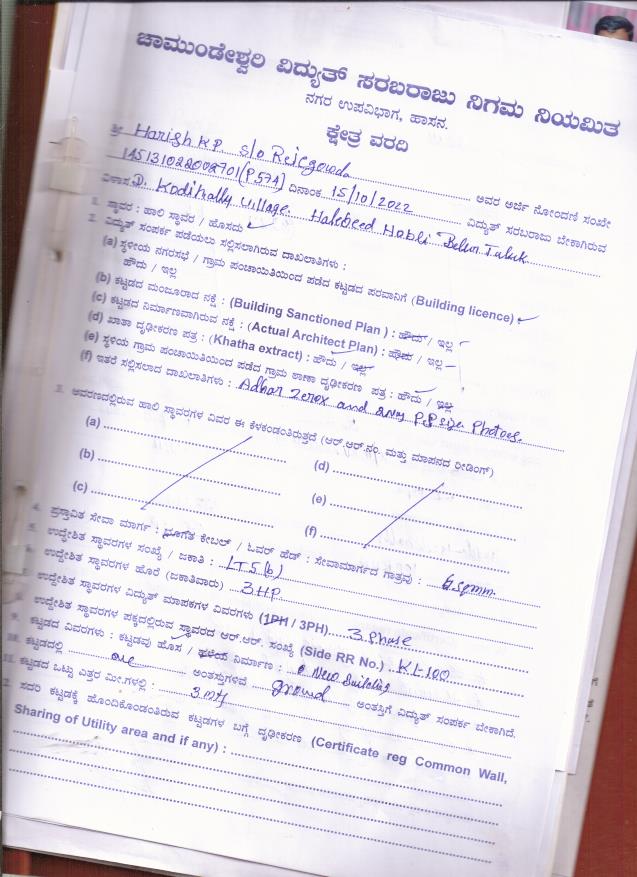 ಚಾಮುಂಡೇಶ್ವರಿ ವಿದ್ಯುತ್ ಸರಬರಾಜು ನಿಗಮ ನಿಯಮಿತ
ನಗರ ಉಪವಿಭಾಗ, ಹಾಸನ.
ಕ್ಷೇತ್ರ ವರದಿ
ಶ್ರೀ Harish K P S/o Rejegowda ಅವರ ಅರ್ಜಿ ನೋಂದಣಿ ಸಂಖ್ಯೆ
145131022002701 (P574) ದಿನಾಂಕ 15/10/2022 ವಿದ್ಯುತ್ ಸರಬರಾಜು ಬೇಕಾಗಿರುವ
ವಿಳಾಸ D. Kodihally village. Halebeed Hobli Belur Taluk
1. ಸ್ಥಾವರ : ಹಾಲಿ ಸ್ಥಾವರ / ಹೊಸದು ✓
2. ವಿದ್ಯುತ್ ಸಂಪರ್ಕ ಪಡೆಯಲು ಸಲ್ಲಿಸಲಾಗಿರುವ ದಾಖಲಾತಿಗಳು :
(a) ಸ್ಥಳೀಯ ನಗರಸಭೆ / ಗ್ರಾಮ ಪಂಚಾಯಿತಿಯಿಂದ ಪಡೆದ ಕಟ್ಟಡದ ಪರವಾನಿಗೆ (Building licence) : ✓
ಹೌದು / ಇಲ್ಲ
(b) ಕಟ್ಟಡದ ಮಂಜೂರಾದ ನಕ್ಷೆ : (Building Sanctioned Plan ) : ಹೌದು / ಇಲ್ಲ
(c) ಕಟ್ಟಡದ ನಿರ್ಮಾಣವಾಗಿರುವ ನಕ್ಷೆ : (Actual Architect Plan) : ಹೌದು / ಇಲ್ಲ
(d) ಖಾತಾ ದೃಢೀಕರಣ ಪತ್ರ : (Khatha extract) : ಹೌದು / ಇಲ್ಲ
(e) ಸ್ಥಳೀಯ ಗ್ರಾಮ ಪಂಚಾಯಿತಿಯಿಂದ ಪಡೆದ ಗ್ರಾಮ ಠಾಣಾ ದೃಢೀಕರಣ ಪತ್ರ : ಹೌದು / ಇಲ್ಲ
(f) ಇತರೆ ಸಲ್ಲಿಸಲಾದ ದಾಖಲಾತಿಗಳು : Adhar Zerox and PP size Photoes.
3. ಆವರಣದಲ್ಲಿರುವ ಹಾಲಿ ಸ್ಥಾವರಗಳ ವಿವರ ಈ ಕೆಳಕಂಡಂತಿರುತ್ತದೆ (ಆರ್.ಆರ್.ನಂ. ಮತ್ತು ಮಾಪನದ ರೀಡಿಂಗ್)
(a)
(b)
(c)
(d)
(e)
(f)
4. ಪ್ರಸ್ತಾವಿತ ಸೇವಾ ಮಾರ್ಗ : ಭೂಗತ ಕೇಬಲ್ / ಓವರ್ ಹೆಡ್ : ಸೇವಾಮಾರ್ಗದ ಗಾತ್ರವು : 6 sqmm.
5. ಉದ್ದೇಶಿತ ಸ್ಥಾವರಗಳ ಸಂಖ್ಯೆ / ಜಕಾತಿ : LT5(b)
6. ಉದ್ದೇಶಿತ ಸ್ಥಾವರಗಳ ಹೊರೆ (ಜಕಾತಿವಾರು) 3HP
ಉದ್ದೇಶಿತ ಸ್ಥಾವರಗಳ ವಿದ್ಯುತ್ ಮಾಪಕಗಳ ವಿವರಗಳು (1PH / 3PH) 3 Phase
ಉದ್ದೇಶಿತ ಸ್ಥಾವರಗಳ ಪಕ್ಕದಲ್ಲಿರುವ ಸ್ಥಾವರದ ಆರ್.ಆರ್. ಸಂಖ್ಯೆ (Side RR No.) KL-100
9. ಕಟ್ಟಡದ ವಿವರಗಳು : ಕಟ್ಟಡವು ಹೊಸ / ಹಳೆಯ ನಿರ್ಮಾಣ : New Building
10. ಕಟ್ಟಡದಲ್ಲಿ one ಅಂತಸ್ತುಗಳಿವೆ ground ಅಂತಸ್ತಿಗೆ ವಿದ್ಯುತ್ ಸಂಪರ್ಕ ಬೇಕಾಗಿದೆ.
11. ಕಟ್ಟಡದ ಒಟ್ಟು ಎತ್ತರ ಮೀ.ಗಳಲ್ಲಿ : 3 mt
2. ಸದರಿ ಕಟ್ಟಡಕ್ಕೆ ಹೊಂದಿಕೊಂಡಂತಿರುವ ಕಟ್ಟಡಗಳ ಬಗ್ಗೆ ದೃಢೀಕರಣ (Certificate reg Common Wall,
Sharing of Utility area and if any) :